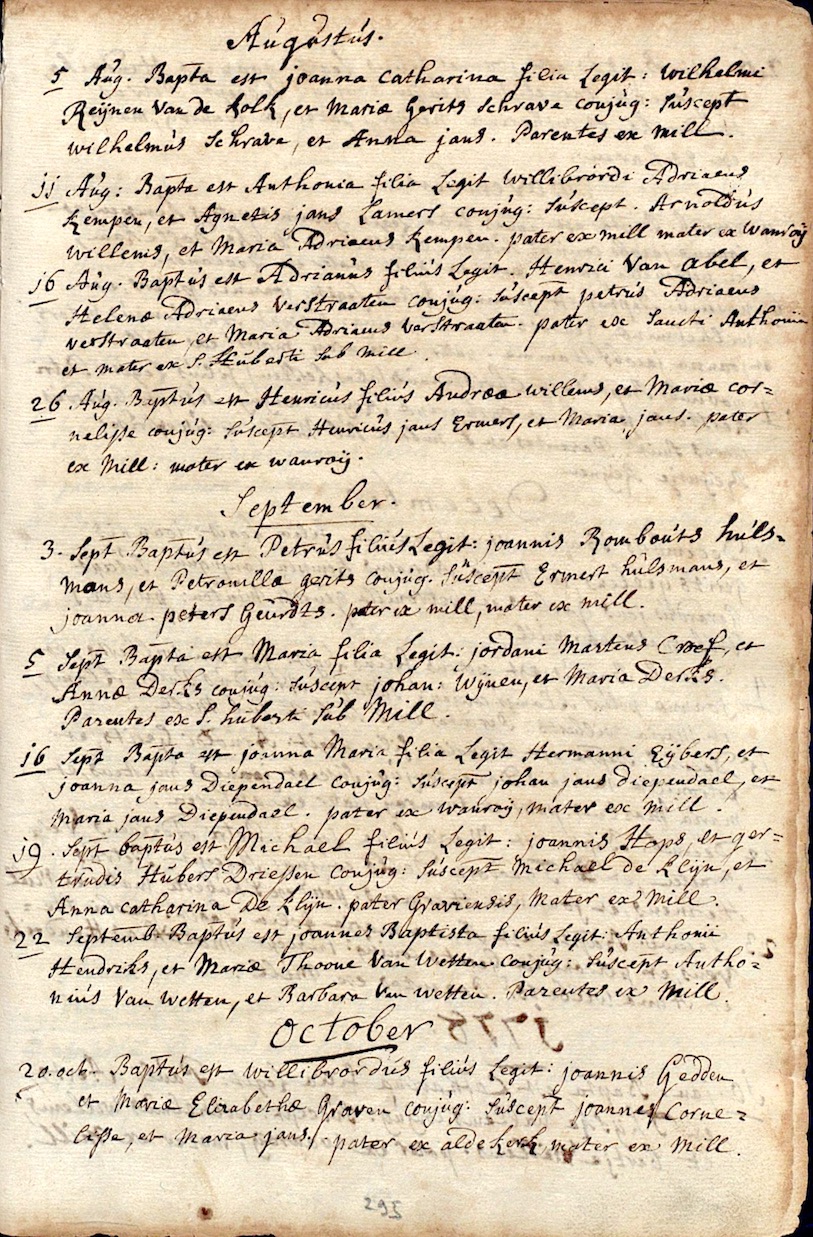 Augustus.
5 Aug. Bapta est joanna catharina filia Legit: wilhelmi
Reijnen van de kolk, et Mariæ Gerits Schrave conjug: Suscept
wilhelmus Schrave, et Anna jans. Parentes ex Mill.
11 Aug: Bapta est Anthonia filia Legit willibrordi Adriaens
kempen, et Agnetis jans Lamers conjug: Suscept. Arnoldus
willems, et Maria Adriaens kempen. pater ex mill mater ex wanroij
16 Aug. Baptus est Adrianus filius Legit. Henrici Van abel, et
Helenæ Adriaens verstraaten conjug: Suscept petrus Adriaens
verstraaten, et Maria Adriaens verstraaten. pater ex Sancti Anthonii
et mater ex S. Huberti Sub mill.
26 Aug. Baptus est Henricus filius Andreæ willems, et Mariæ cor=
nelisse conjug: Suscept Henricus jans Ermers, et Maria jans. pater
ex Mill: mater ex wanroij.
September.
3. Sept Baptus est Petrus filius Legit: joannis Rombouts huls=
mans, et Petronilla gerits conjug. Suscept Ermert hulsmans, et
joanna peters Geurdts. pater ex mill, mater ex mill.
5 Sept Bapta est Maria filia Legit: jordani Martens Croef, et
Annæ Derks conjug: Suscept johan: Wijnen, et Maria Derks.
Parentes ex S. huberti Sub Mill.
16 Sept Bapta est joanna Maria filia Legit Hermanni Eijbers, et
joanna jans Diependael conjug: Suscept johan jans diependael, et
Maria jans Diependael. pater ex wanroij, mater ex mill.
19. Sept baptus est Michael filius Legit: joannis Hops, et ger=
trudis Hubers Driessen conjug: Suscept Michael de klijn, et
Anna catharina De klijn. pater Graviensis, Mater ex Mill.
22 Septemb. Baptus est joannes Baptista filius Legit: Anthonii
Hendriks, et Mariæ Thoone Van Wetten conjug: Suscept Autho=
nius Van Wetten, et Barbara Van wetten. Parentes ex Mill.
October
20. oct. Baptus est willibrordus filius Legit: joannis Gedden
et Mariæ Elizabethæ Graven conjug: Suscept joannes Corne=
lisse, et Maria jans. pater ex aldekerk mater ex Mill.
295